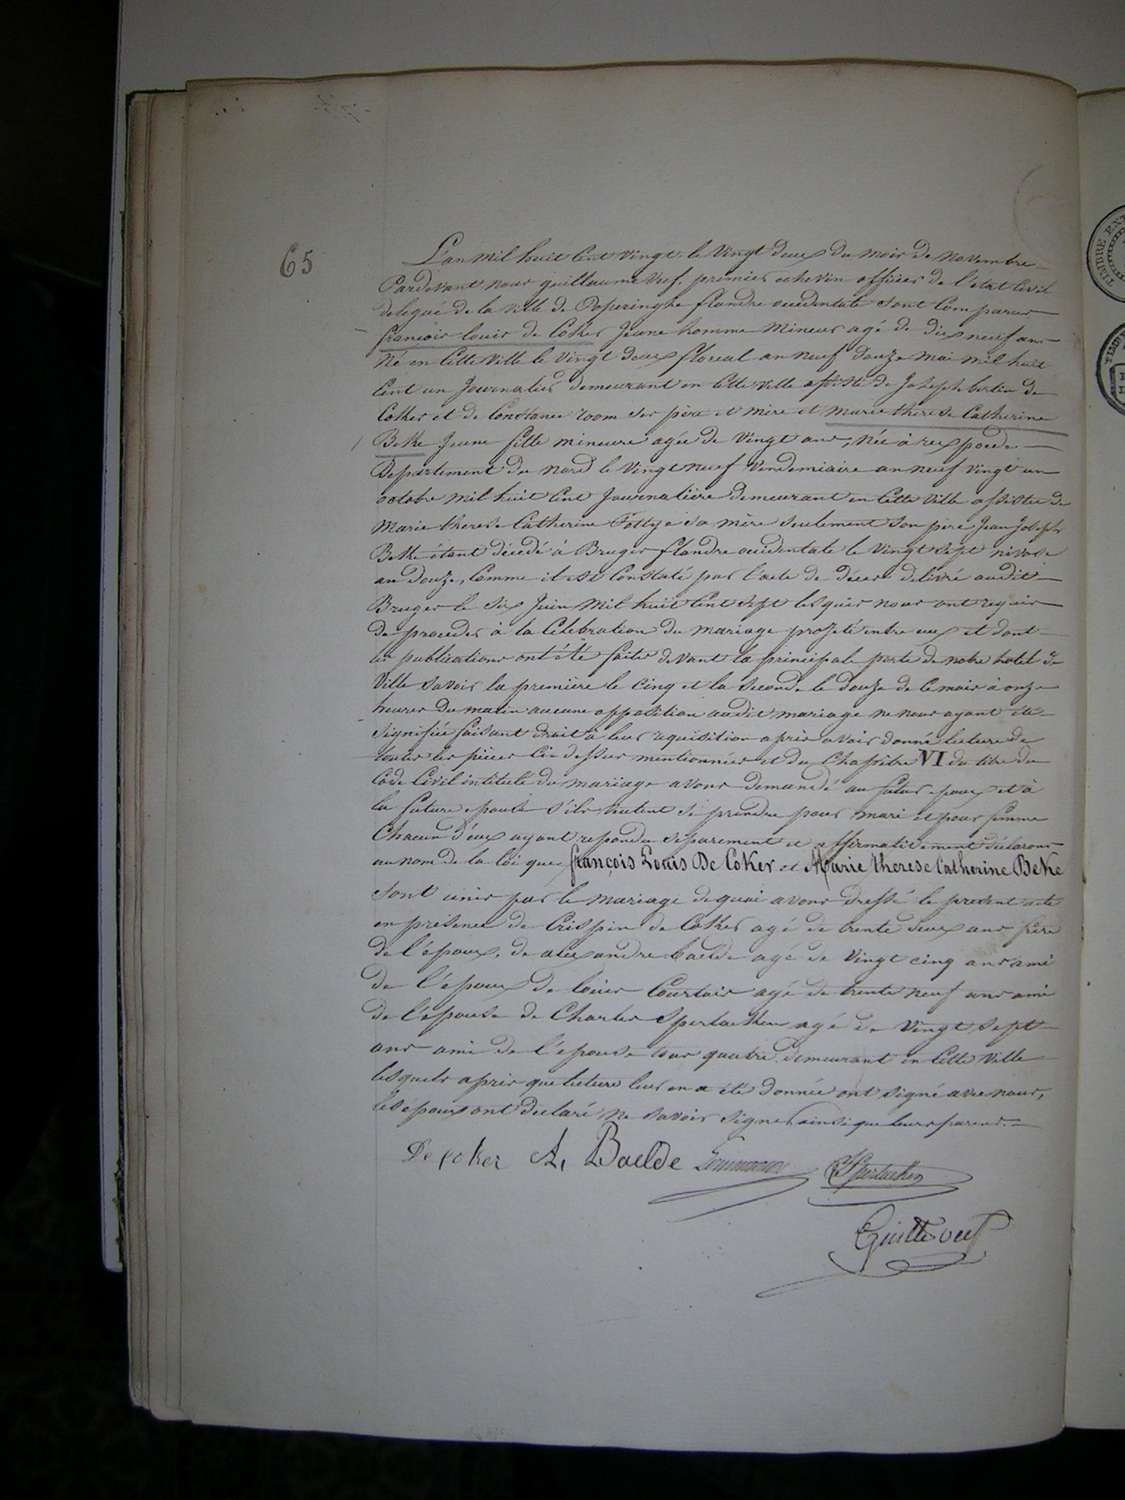 65
L'an mil huit Cent Vingt le Vingt deux du mois de Novembre
Pardevant nous guillaume Vref. premier echevin officier de l'état Civil
delegué de la Ville de Poperinghe flandre occidentale Sont Comparus
françois louis de Coker Jeune homme Mineur agé de dix neuf ans
Né en Cette Ville le Vingt deux floreal an neuf douze Mai mil huit
Cent un Journalier demeurant en Cette Ville assisté de Joseph bertin de
Coker et de Constance room Ses père et mère et Marie therese Catherine
Beke Jeune fille mineure agée de Vingt ans, Née à rexpoede
Departement du nord le Vingt neuf Vendemiaire an neuf vingt un
octobre mil huit Cent Journalière demeurant en Cette Ville assistée de
Marie therese Catherine Sa mère Seulement Son père Jean Joseph
Beke étant décédé à Bruges flandre occidentale le Vingt Sept nivose
an douze, Comme il est Constaté par l'acte de décès délivré audit
Bruges le Six Juin Mil huit Cent Sept lesquels nous ont requis
de proceder à la Célebration du mariage projeté entre eux et dont
les publications ont été faites devant la principale porte de notre hotel de
Ville Savoir la première le Cinq et la Seconde le douze de Ce mois à onze
heures du matin aucune opposition audit mariage ne nous ayant été
Signifiée faisant droit à leur requisition après avoir donné lecture de
toutes les pièces Ci-dessus mentionnées et du Chapitre VI du titre du
Code Civil intitulé du mariage avons demandé au futur epoux et à
la future epouse S'ils veulent Se prendre pour mari et pour femme
Chacun d'eux ayant repondu Séparement et affirmativement déclarons
au nom de la loi que françois Louis De Coker et Marie therese Catherine Beke
Sont unis par le mariage de quoi avons dressé le present acte
en présence de Crispin de Coker agé de trente deux ans frère
de l'époux, de alexandre baelde agé de Vingt cinq ans ami
de l'époux de louis Courtois agé de trente neuf ans ami
de l'épouse de Charles Spertaelken agé de Vingt Sept
ans ami de l'epouse tous quatre demeurant en Cette Ville
lesquels après que lecture leur en a été donnée ont Signé avec nous,
les époux ont declaré ne Savoir Signer ainsi que leurs parens.
De Coker A. Baelde